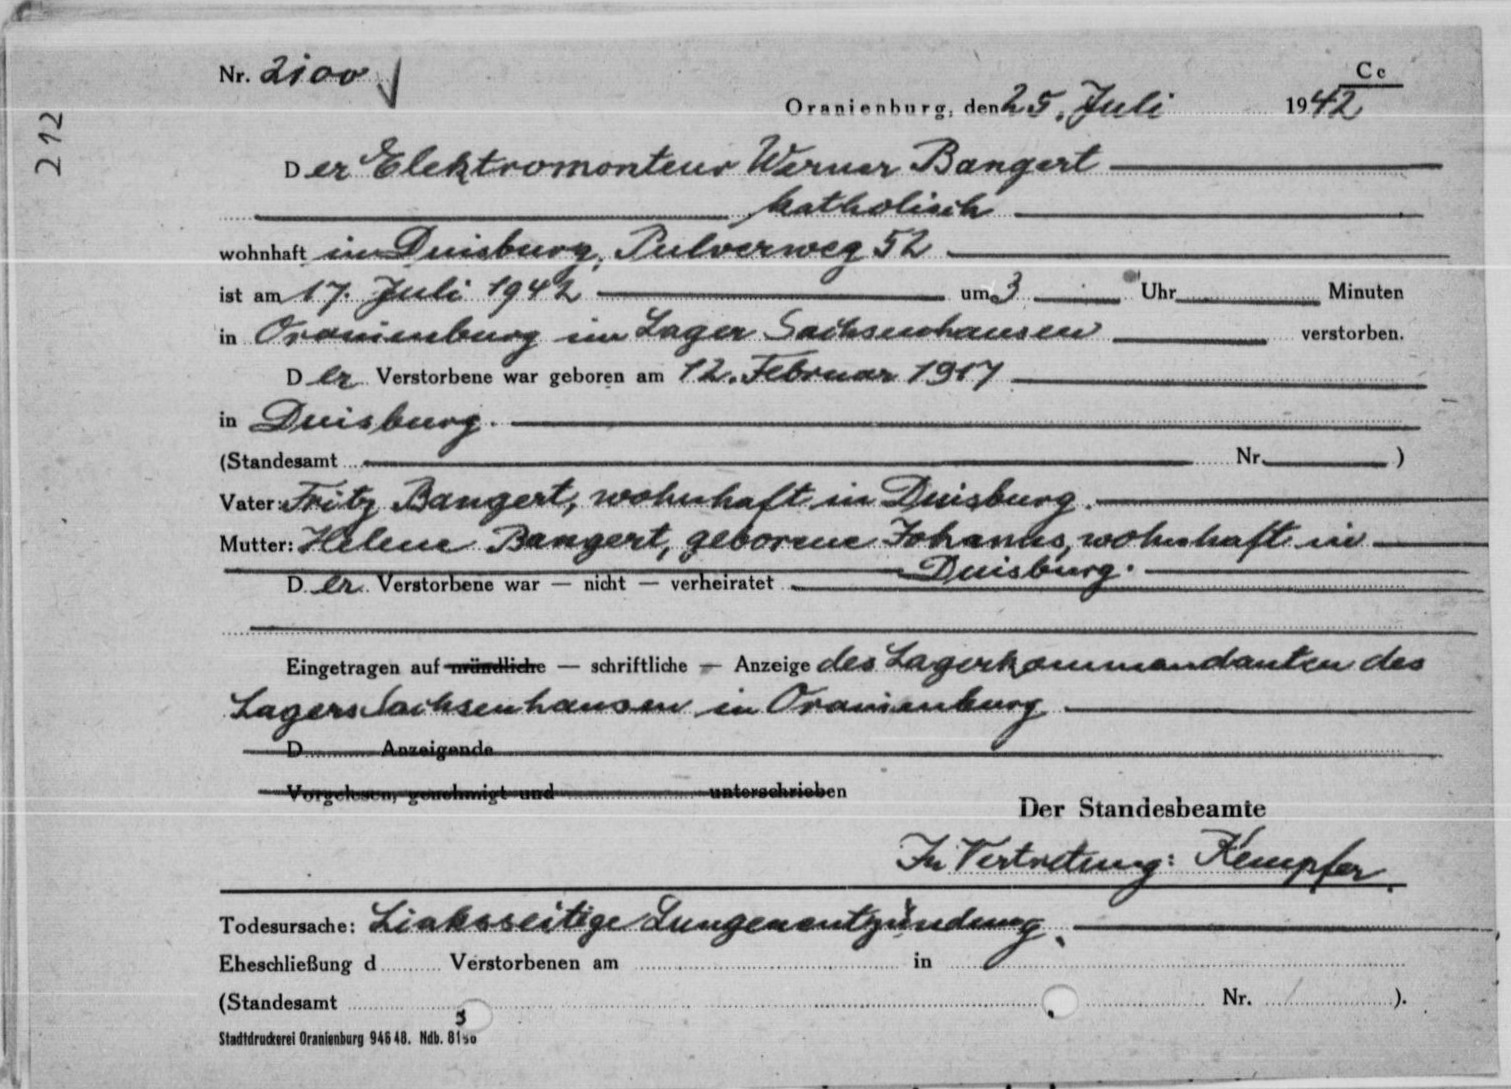 Nr. 2100
Cc
212
Oranienburg, den 25. Juli 1942
Der Elektromonteur Werner Bangert
katholisch
wohnhaft in Duisburg, Pulverweg 52
ist am 17. Juli 1942 um 3 Uhr Minuten
in Oranienburg im Lager Sachsenhausen verstorben.
Der Verstorbene war geboren am 12. Februar 1917
in Duisburg.
(Standesamt Nr. )
Vater: Fritz Bangert, wohnhaft in Duisburg.
Mutter: Helene Bangert, geborene Johanns, wohnhaft in
Duisburg.
Der Verstorbene war — nicht — verheiratet
Eingetragen auf mündliche — schriftliche — Anzeige des Lagerkommandanten des
Lagers Sachsenhausen in Oranienburg
D Anzeigende
Vorgelesen, genehmigt und unterschrieben
Der Standesbeamte
In Vertretung: Kempfer.
Todesursache: Linksseitige Lungenentzündung.
Eheschließung d Verstorbenen am in
(Standesamt Nr. ).
Stadtdruckerei Oranienburg 946 48. Ndb.